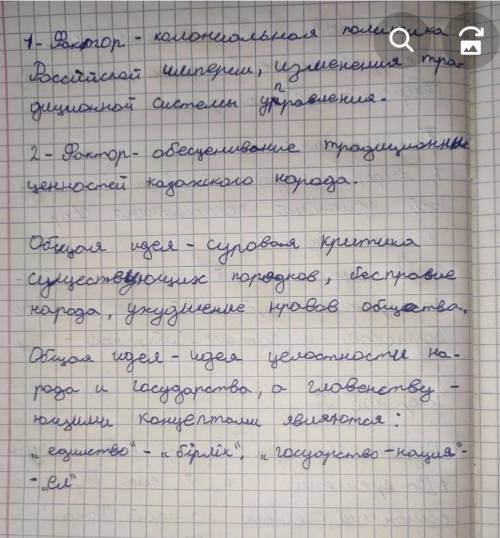 1- Фактор - колониальная политика
Российской империи, изменения тра-
диционной системы управления.
2- Фактор - обесценивание традиционные
ценностей казахского народа.
Общая идея - суровая критика
существующих порядков, бесправие
народа, ухудшение нравов общества.
Общая идея - идея целостности на-
рода и государства, а главенству-
ющими концептами являются:
„единство" - „бірлік", „государство-нация"-
- „ел"